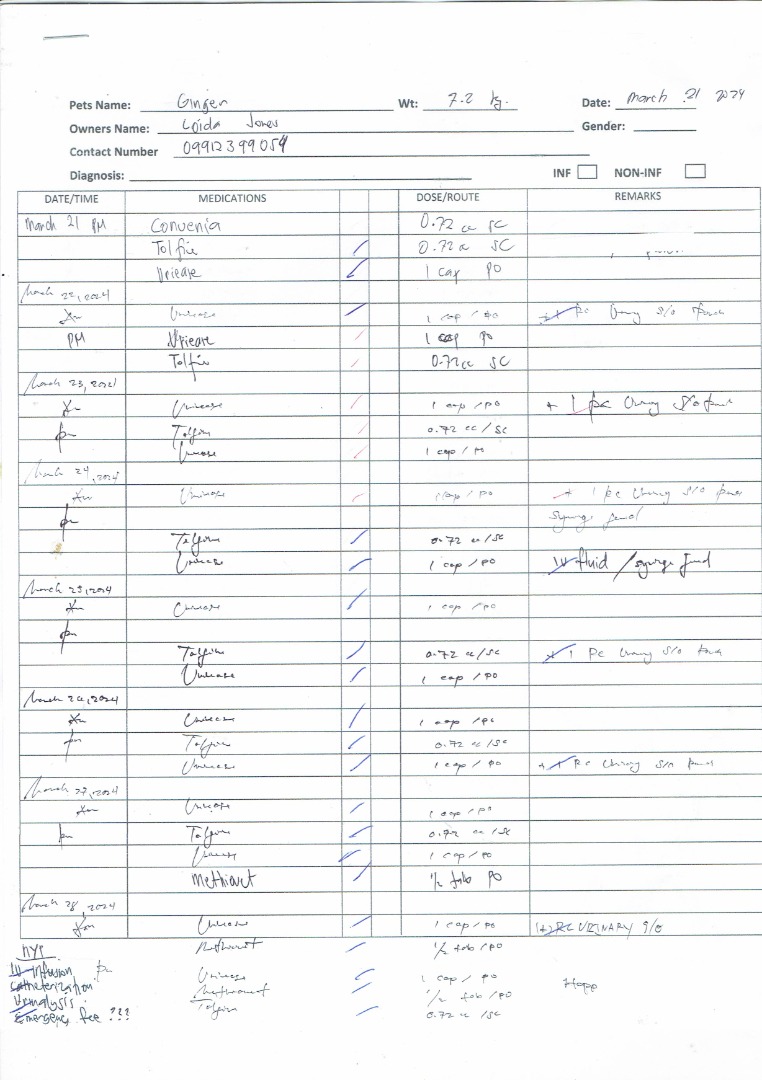 Pets Name: Ginger Wt: 7.2 kg. Date: March 21 2024
Owners Name: Loida Jones Gender:
Contact Number 09912399054
Diagnosis: INF NON-INF
DATE/TIME MEDICATIONS DOSE/ROUTE REMARKS
March 21 PM Convenia 0.72 cc SC
Tolfine 0.72 cc SC
Uricare 1 cap PO
March 22, 2024
Am 1 cap / PO + 1 pc Urinary S/O
PM Uricare 1 cap PO
Tolfine 0.72 cc SC
March 23, 2024
Am 1 cap / PO + 1 pc Urinary S/O
pm Tolfine 0.72 cc / SC
1 cap / PO
March 24, 2024
Am 1 cap / PO + 1 pc Urinary S/O
pm syringe feed
Tolfine 0.72 cc / SC
1 cap / PO IV fluid / syringe feed
March 25, 2024
Am 1 cap / PO
pm
Tolfine 0.72 cc / SC + 1 pc Urinary S/O
1 cap / PO
March 26, 2024
Am 1 cap / PO
pm Tolfine 0.72 cc / SC
1 cap / PO + 1 pc Urinary S/O
March 27, 2024
Am 1 cap / PO
pm Tolfine 0.72 cc / SC
1 cap / PO
Methiovet 1/2 tab PO
March 28, 2024
Am 1 cap / PO URINARY S/O
Methiovet 1/2 tab / PO
IV Infusion pm 1 cap / PO
Catheterization Methiovet 1/2 tab / PO
Urinalysis Tolfine 0.72 cc / SC
Emergency fee ???